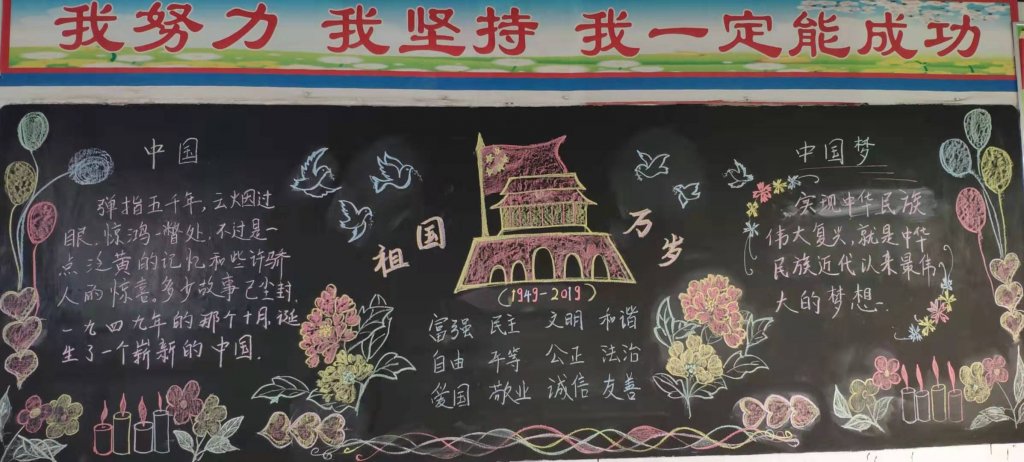 我努力 我坚持 我一定能成功
中国
弹指五千年,云烟过
眼.惊鸿一瞥处,不过是一
点泛黄的记忆和些许骄
人的惊喜.多少故事已尘封.
一九四九年的那个十月.诞
生了一个崭新的中国.
祖国万岁
(1949-2019)
富强 民主 文明 和谐
自由 平等 公正 法治
爱国 敬业 诚信 友善
中国梦
实现中华民族
伟大复兴,就是中华
民族近代以来最伟
大的梦想.